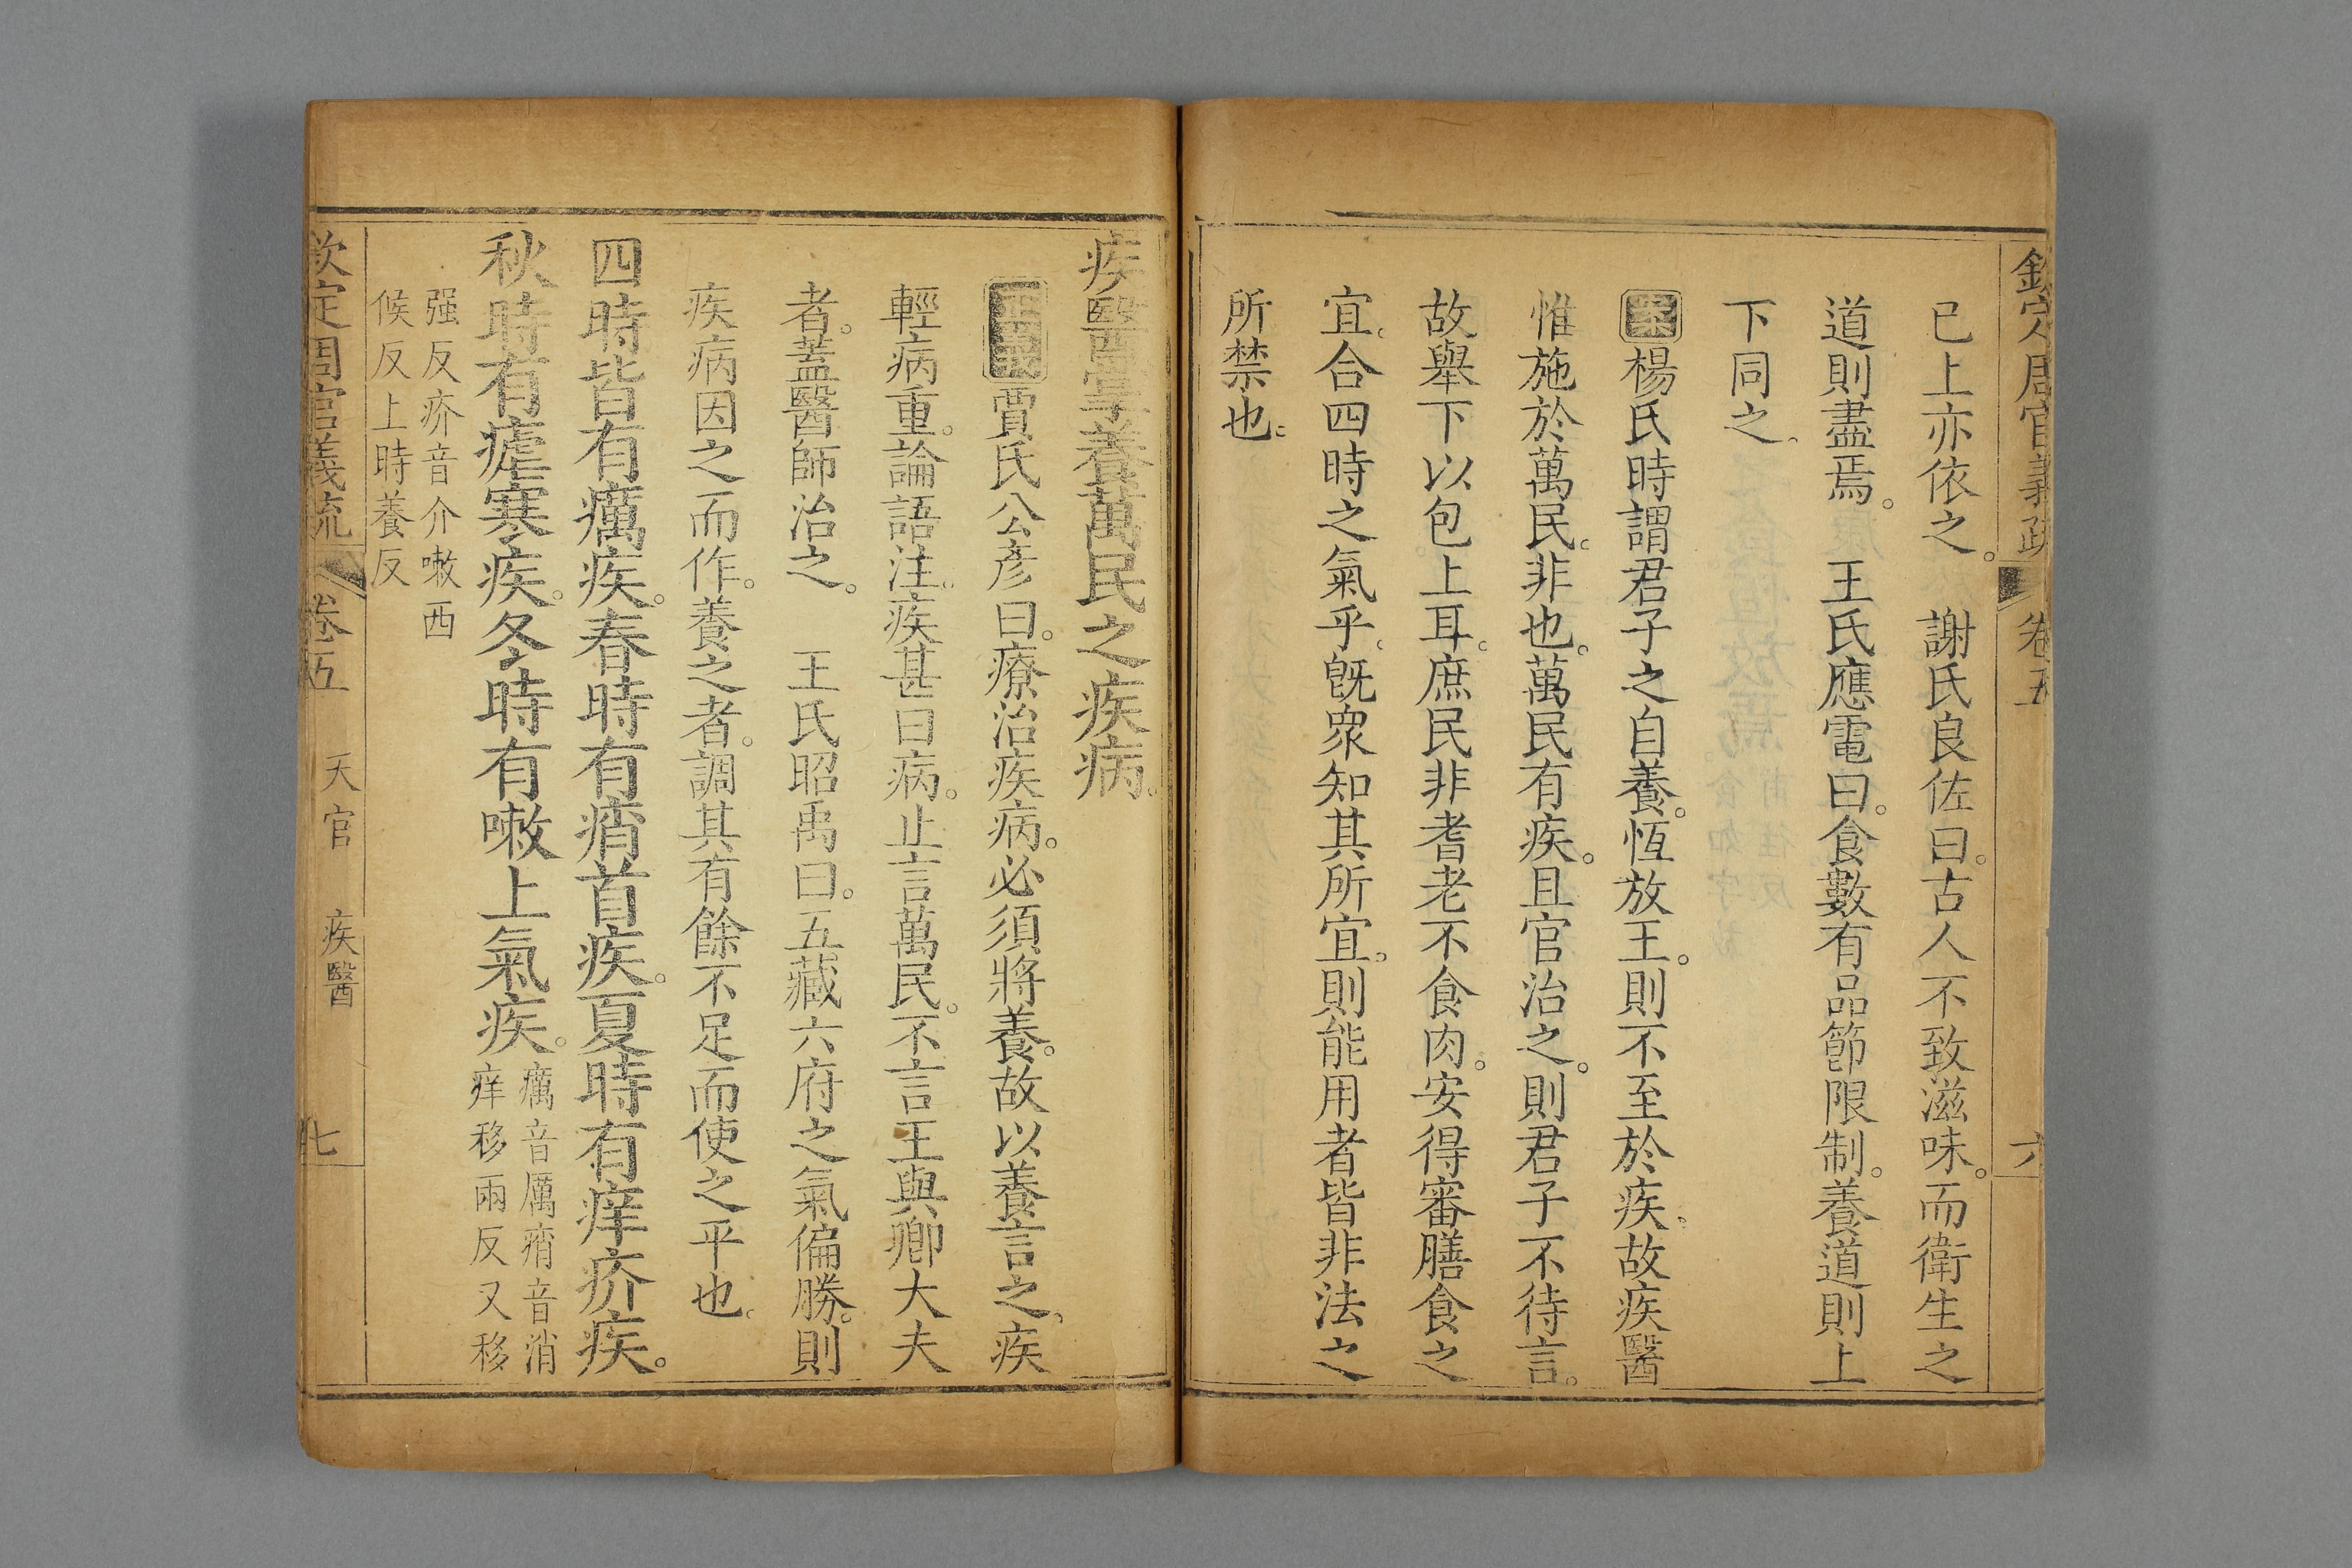 欽定周官義疏 卷五 六
已上亦依之。 謝氏良佐曰。古人不致滋味。而衛生之
道則盡焉。 王氏應電曰。食數有品節限制。養道則上
下同之。
案楊氏時謂君子之自養。恆放王。則不至於疾。故疾醫
惟施於萬民。非也。萬民有疾。且官治之。則君子不待言。
故舉下以包上耳。庶民非耆老不食肉。安得審膳食之
宜。合四時之氣乎。旣衆知其所宜。則能用者皆非法之
所禁也。
疾醫掌養萬民之疾病。
賈氏公彥曰。療治疾病。必須將養。故以養言之。疾
輕病重。論語注。疾甚曰病。止言萬民。不言王與卿大夫
者。蓋醫師治之。 王氏昭禹曰。五藏六府之氣偏勝。則
疾病因之而作。養之者。調其有餘不足而使之平也。
四時皆有癘疾。春時有痟首疾。夏時有痒疥疾。
秋時有瘧寒疾。冬時有嗽上氣疾。癘音厲痟音消
痒移兩反又移
强反疥音介嗽西
候反上時養反
欽定周官義疏 卷五 天官 疾醫 七